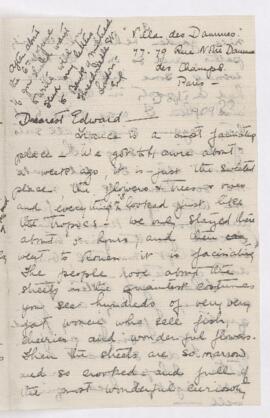 Villa des Dammes
77-79 Rue Notre Damme
des Champs
Paris -
After about
send my letters
Dearest Edward -
France is a most fascinating
place - We got
a week ago, it is just the sweetest
place the flowers & trees & roses
and everything looked just like
the tropics - we only stayed there
about hours and then
went to Rouen. it is fascinating
The people about the
streets in the quaintest costumes
you see hundreds of very very
fat women who sell fish
cherries and wonderful flowers.
Then the streets are so narrow
and so crooked and full of
the most wonderful curiosity